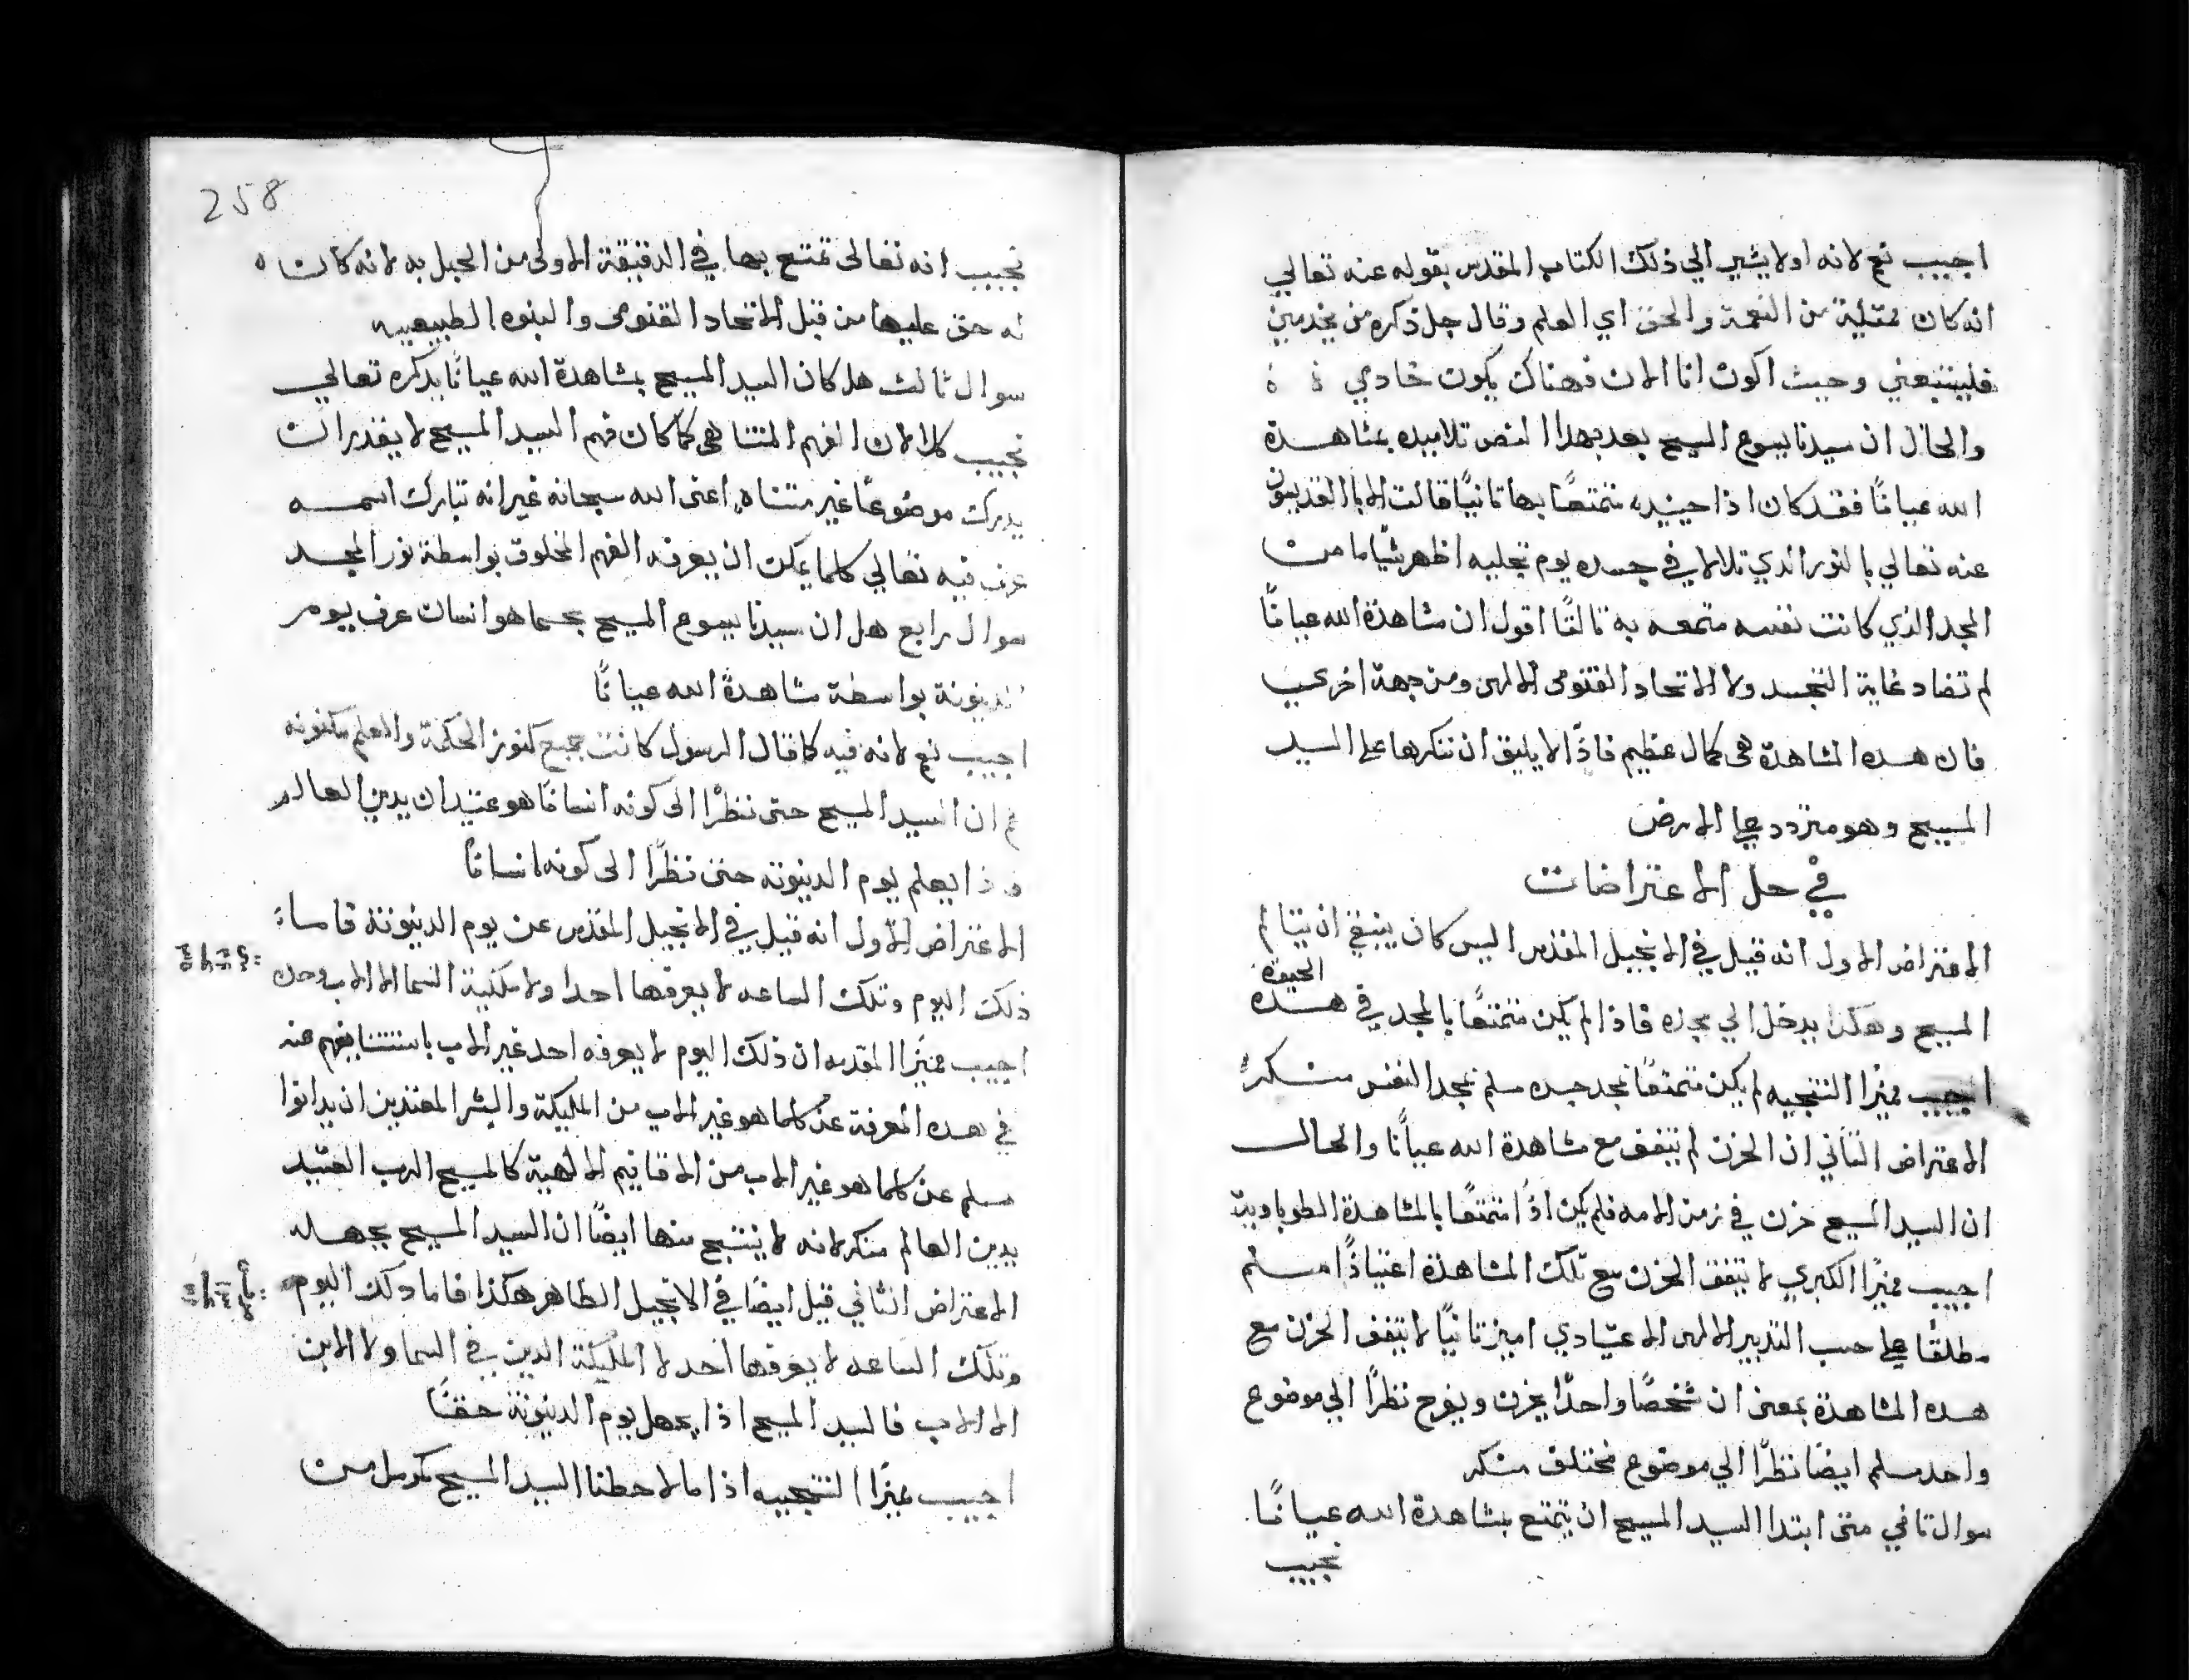 اجيب نعم لانه اولا يشير الي ذلك الكتاب المقدس بقوله عنه تعالي
انه كان ممتلية من النعمة والحق اي العلم وقال جل ذكره من يخدمني
فليتبعني وحيث اكون انا الان فهناك يكون خادمي ة ة
والحال ان سيدنا يسوع المسيح بعد بهدا النص تلاميده بمشاهدة
الله عيانًا فقد كان اذا حينيد متمتعًا بها ثانيًا قالت الابا القديسون
عنه تعالي بالنور الدي تلالا في جسده يوم تجليه اظهر شيًا ما من
المجد الذي كانت نفسه متمعه به ثالثًا اقول ان مشاهدة الله عيانًا
لم تضاد غاية التجسد ولا الاتحاد القنومى الالهى ومن جهة اخرى
فان هده المشاهدة هى كمال عظيم فاذًا لا يليق ان ننكرها على السيد
المسيح وهو متردد علي الارض
في حل الاعتراضات
الاعتراض الاول انه قيل في الانجيل المقدس اليس كان ينبغي ان يتالم
المسيح وهكذا يدخل الي مجده فاذا لم يكن متمتعًا بالمجد في هده
الحيوة
اجيب مميزًا النتيجيه لم يكن متمتعًا بمجد جسده مسلم بمجد النفس منكر
الاعتراض الثاني ان الحزن لم يتفق مع مشاهدة الله عيانًا والحال
ان السيد المسيح حزن في زمن الامه فلم يكن اذًا متمتعًا بالمشاهدة الطوباوية
اجيب مميزًا الكبري لا يتفق الحزن مع تلك المشاهدة اعتياذًا مسلم
مطلقًا علي حسب التدبير الالهى الاعتيادي اميز ثانيًا لا يتفق الحزن مع
هده المشاهدة بمعنى ان شخصًا واحدًا يحزن ويفرح نظرًا الي موضوع
واحد مسلم ايضًا نظرًا الي موضوع مختلف منكر
سوال ثاني متى ابتدا السيد المسيح ان يتمتع بمشاهدة الله عيانًا
نجيب
258
نجيب انه تعالى تمتع بها في الدقيقة الاولى من الحبل به لانه كان ه
له حق عليها من قبل الاتحاد القنومى والبنوه الطبيعيه
سوال ثالث هل كان السيد المسيح بمشاهدة الله عيانًا يدكره تعالي
نجيب كلا لان الفهم المتناهى كما كان فهم السيد المسيح لا يقدر ان
يدرك موضوعًا غير متناه اعنى الله سبحانه غير انه تبارك اسمه
عرف فيه تعالي كلما يمكن ان يعرفه الفهم المخلوق بواسطة نور المجد
سوال رابع هل ان سيدنا يسوع المسيح بحسما هو انسان عرف يوم
الدينونة بواسطة مشاهدة الله عيانًا
اجيب نعم لانه فيه كما قال الرسول كانت جميع كنوز الحكمة والعلم مكنونه
ثم ان السيد المسيح حتى نظرًا الى كونه انسانًا هو عتيد ان يدين العالم
فاذا يعلم يوم الدينونه حتى نظرًا الى كونه انسانًا
الاعتراض الاول انه قيل في الانجيل المقدس عن يوم الدينونة فاما
ذلك اليوم وتلك الساعه لا يعرفها احدا ولا ملئيكة السما الا الاب وحده
اجيب مميزًا المقدمه ان ذلك اليوم لا يعرفه احد غير الاب باستثنا يفهم منه
في هده المعرفة عن كلما هو غير الاب من المليكة والبشر المعتدين ان يدانوا
مسلم عن كلما هو غير الاب من الاقانيم الالهية كالمسيح الرب العتيد
يدين العالم منكر لانه لا ينتج منها ايضًا ان السيد المسيح يجهله
الاعتراض الثاني قيل ايضًا في الانجيل الطاهر هكذا فاما دلك اليوم
وتلك الساعه لا يعرفها احد لا المليكة الدين في السما ولا الابن
الا الاب فالسيد المسيح اذا يجهل يوم الدينونة حقًا
اجيب مميزًا النتيجيه اذا ما لاحظنا السيد المسيح كرسل من